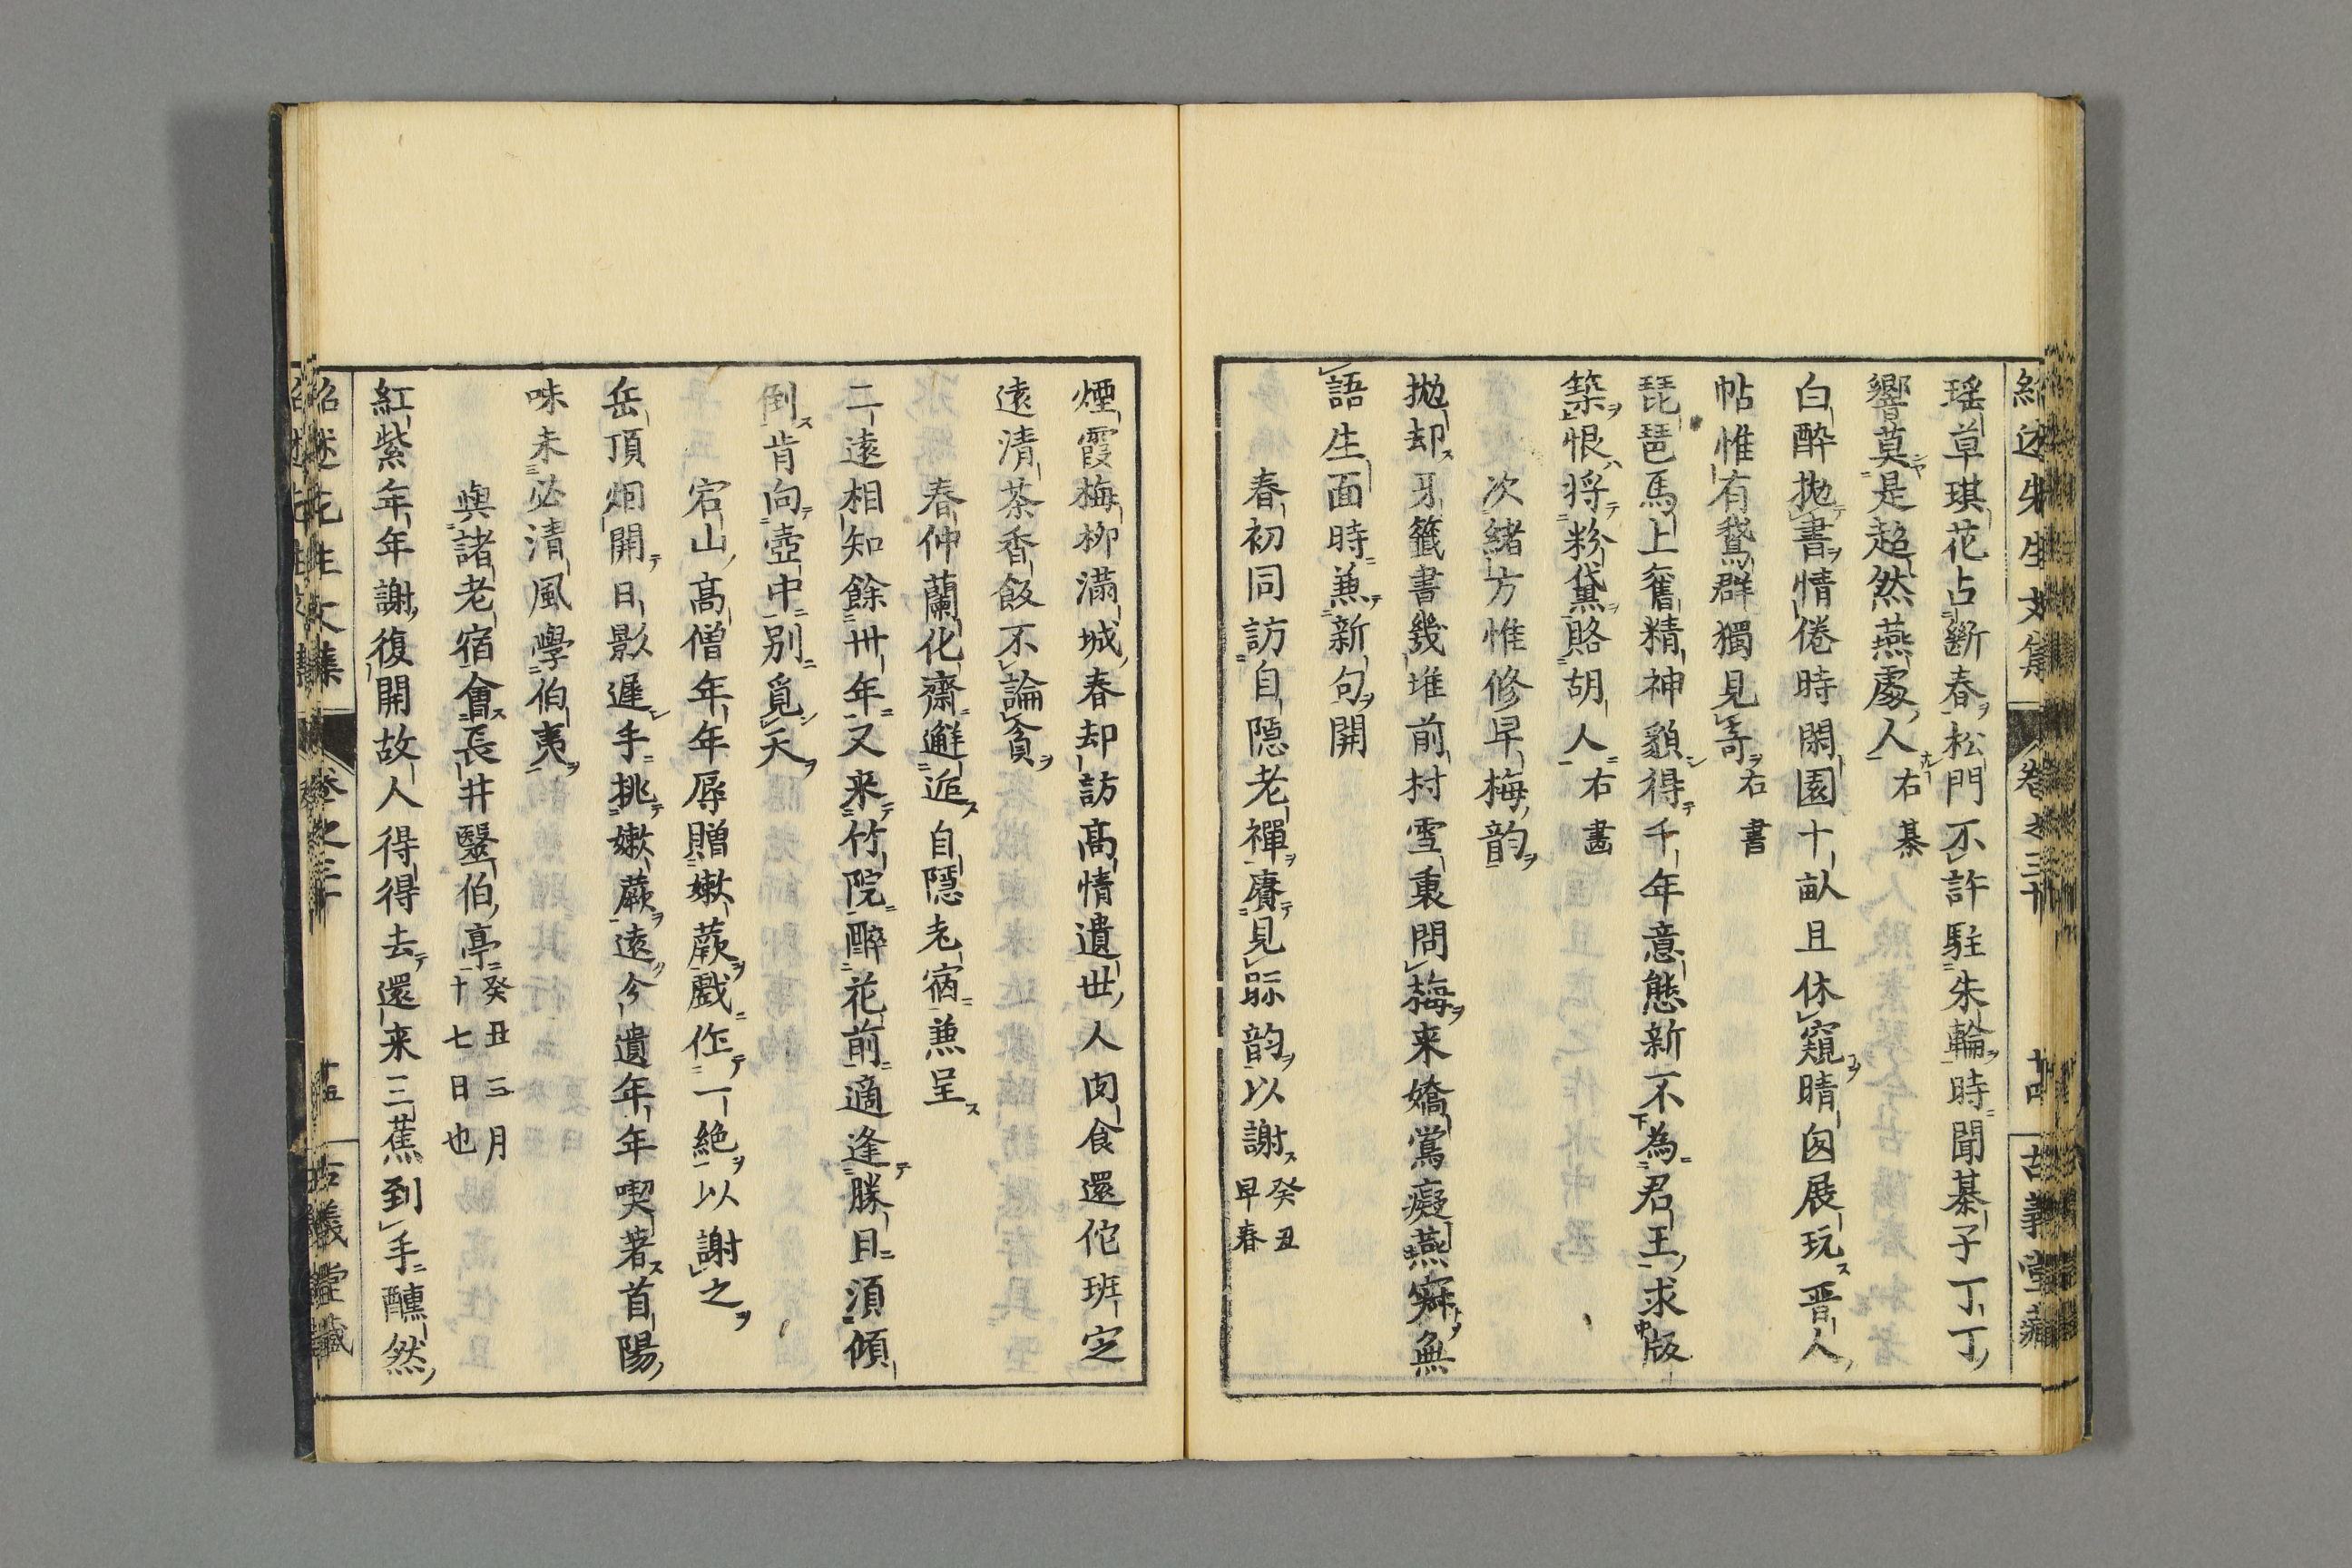 紹述先生文集　卷之三十　十四　古義堂藏
瑶草琪花占斷春松門不許駐朱輪時聞棊子丁丁
響莫是超然燕處人　右棊
白醉拋書情倦時閑園十畝且休窺晴囱展玩晋人
帖惟有鵞群獨見奇　右書
琵琶馬上奮精神貌得千年意態新不為君王求版
築恨將粉黛賂胡人　右畫
次緒方惟修早梅韵
拋却牙籤書幾堆前村雪裏問梅来嬌鶯癡燕寂無
語生面時兼新句開
春初同訪自隱老禪賡見眎韵以謝癸丑早春
煙霞梅柳滿城春却訪高情遺世人肉食還佗班定
遠清茶香飯不論貧
春仲蘭化齋邂逅自隱老宿兼呈
二遠相知餘卅年又来竹院醉花前適逢勝日須傾
倒肯向壺中別覓天
宕山高僧年年辱贈嫩蕨戲作一絕以謝之
岳頂炯開日影遲手挑嫩蕨遠分遺年年喫著首陽
味未必清風學伯夷
與諸老宿會長井醫伯亭癸丑三月十七日也
紅紫年年謝復開故人得得去還来三蕉到手醺然
紹述先生文集　卷之三十　十五　古義堂藏